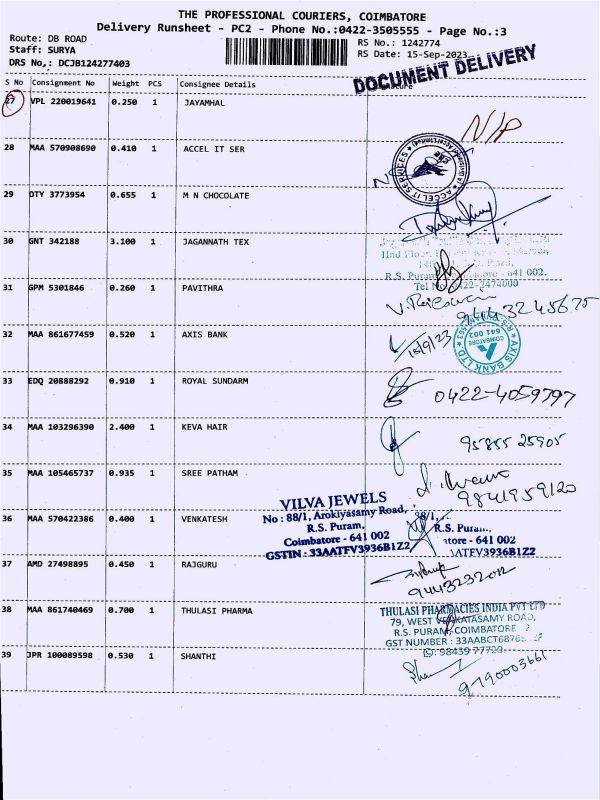 THE PROFESSIONAL COURIERS, COIMBATORE
Delivery Runsheet - PC2 - Phone No.:0422-3505555 - Page No.:3
Route: DB ROAD
Staff: SURYA
DRS No,: DCJB124277403
RS No.: 1242774
RS Date: 15-Sep-2023
DOCUMENT DELIVERY
S No Consignment No Weight PCS Consignee Details
27 VPL 220019641 0.250 1 JAYAMHAL
N/P
28 MAA 570908690 0.410 1 ACCEL IT SER
ACCEL IT SERVICES
29 DTY 3773954 0.655 1 M N CHOCOLATE
30 GNT 342188 3.100 1 JAGANNATH TEX
R.S. Puram, 641 002.
Tel No 0422-2474000
31 GPM 5301846 0.260 1 PAVITHRA
944 32 45675
32 MAA 861677459 0.520 1 AXIS BANK
15/9/23
AXIS BANK LTD
COIMBATORE
641 002
33 EDQ 20888292 0.910 1 ROYAL SUNDARM
0422-4059797
34 MAA 103296390 2.400 1 KEVA HAIR
95855 25905
35 MAA 105465737 0.935 1 SREE PATHAM
9841959120
VILVA JEWELS
No : 88/1, Arokiyasamy Road,
R.S. Puram,
Coimbatore - 641 002
GSTIN : 33AATFV3936B1Z2
36 MAA 570422386 0.400 1 VENKATESH
88/1,
R.S. Puram,
atore - 641 002
AATFV3936B1Z2
37 AMD 27498895 0.450 1 RAJGURU
9443232012
38 MAA 861740469 0.700 1 THULASI PHARMA
THULASI PHARMACIES INDIA PVT LTD
79, WEST VENKATASAMY ROAD,
R.S. PURAM, COIMBATORE
GST NUMBER : 33AABCT6876
98439 77720
39 JPR 100089598 0.530 1 SHANTHI
9790003661